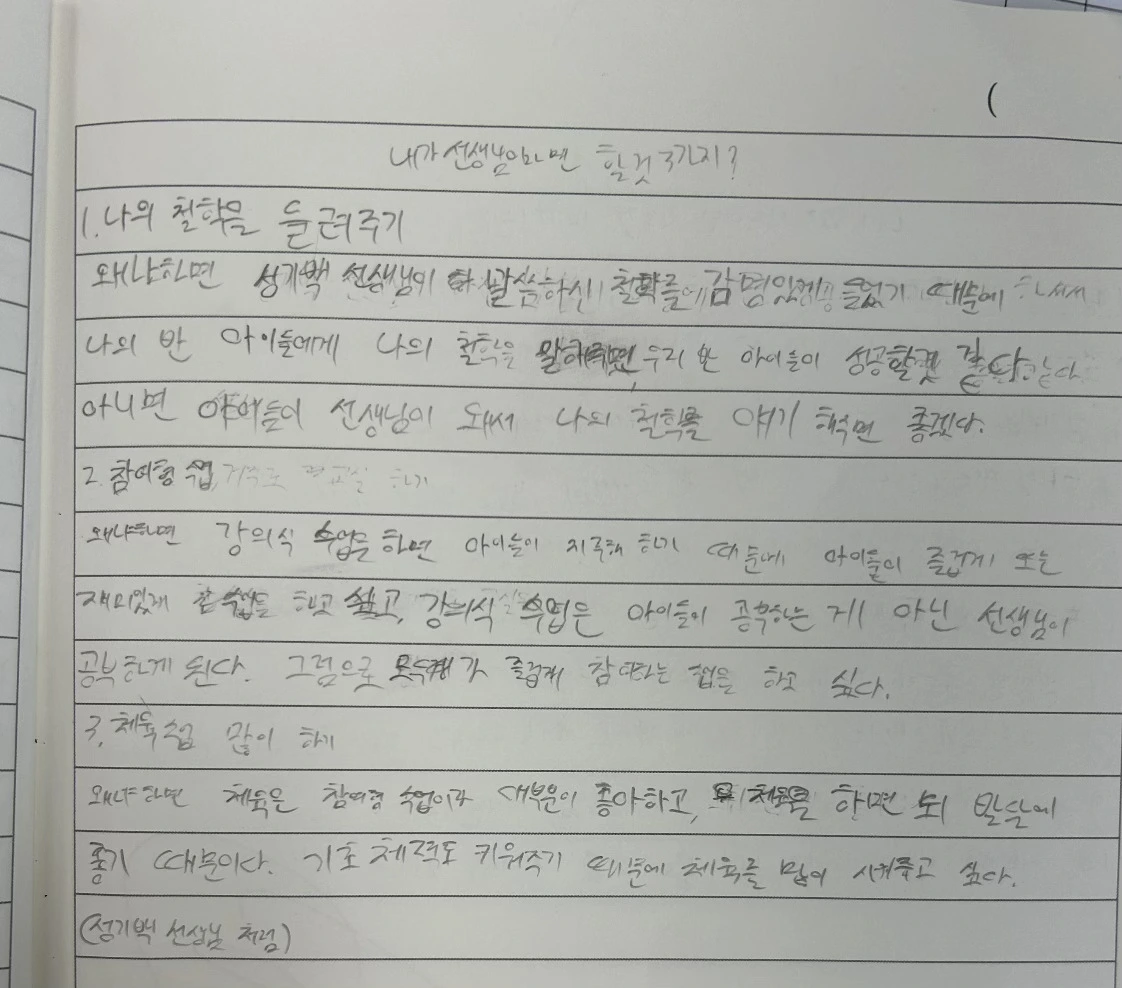 (
내가 선생님이라면 할것 3가지?
1. 나의 철학을 들려주기
왜냐하면 성기백 선생님이 말씀하신 철학를 감명있게 들었기 때문에 커서
나의 반 아이들에게 나의 철학을 말해주면, 우리 반 아이들이 성공할것 같다
아니면 아이들이 선생님이 돼서 나의 철학를 얘기 해주면 좋겠다.
2. 참여형 수업 하기
왜냐하면 강의식 수업을 하면 아이들이 지루해 하기 때문에 아이들이 즐겁게 또는
재미있게 수업을 하고 싶고, 강의식 수업은 아이들이 공부하는 게 아닌 선생님이
공부하게 된다. 그럼으로 모두가 즐겁게 참여하는 수업을 하고 싶다.
3. 체육 수업 많이 하기
왜냐하면 체육은 참여형 수업이라 대부분이 좋아하고, 체육을 하면 뇌 발달에
좋기 때문이다. 기초 체력도 키워주기 때문에 체육를 많이 시켜주고 싶다.
(성기백 선생님 처럼)